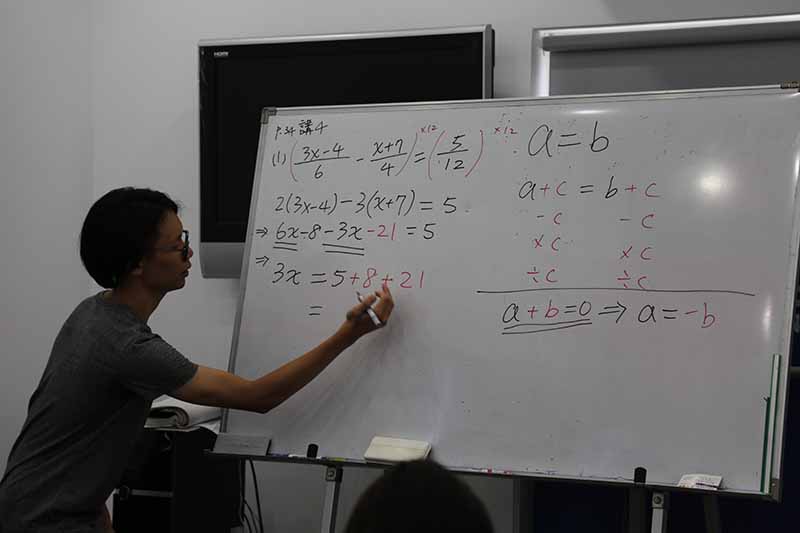 HDMI
P.34 講4
(1) (3x-4/6 - x+7/4)×12 = (5/12)×12
2(3x-4)-3(x+7)=5
⇒ 6x-8-3x-21=5
⇒ 3x=5+8+21
=
a=b
a+c=b+c
-c -c
×c ×c
÷c ÷c
a+b=0⇒a=-b